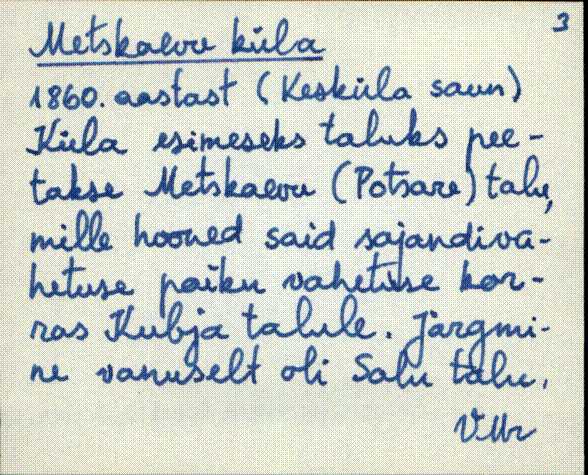 3
Metskaevu küla
1860. aastast (Kesküla saun)
Küla esimeseks taluks pee-
takse Metskaevu (Potsare) talu,
mille hooned said sajandiva-
hetuse paiku vahetuse kor-
ras Kubja talule. Järgmi-
ne vanuselt oli Salu talu.